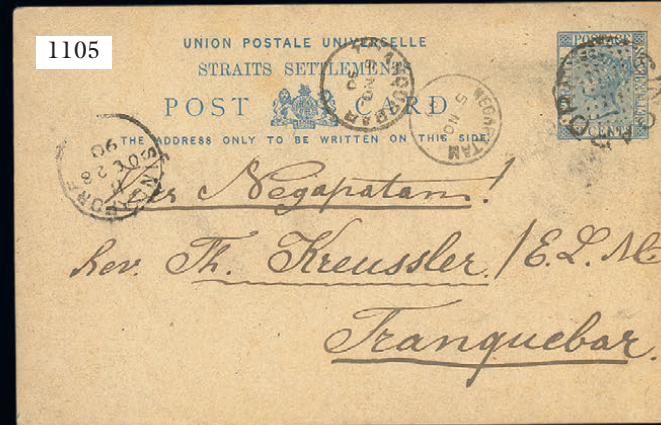 1105
UNION POSTALE UNIVERSELLE
STRAITS SETTLEMENTS
POST CARD
THE ADDRESS ONLY TO BE WRITTEN ON THIS SIDE
POSTAGE
CENTS
TRANQUEBAR
NO
90
NEGAPATAM
5 NO
SINGAPORE
90
Per Negapatam!
Rev. Th. Kreussler. / E. L. M.
Tranquebar.